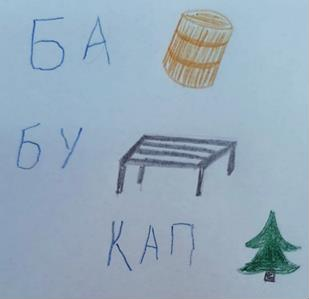 БА
БУ
КАП